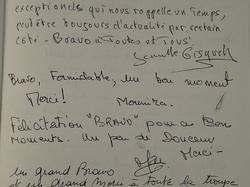 exceptionels qui nous rappelle un Temps,
peut être toujours d'actualité par certain
côté - Bravo à Toutes et Tous
Famille
Bravo, Formidable, un bon moment
Merci! Mounira.
Félicitation "BRAVO" pour ce Bon
moments. Un peu de Douceur
Merci -
un grand Bravo
et un grand Merci à toute la troupe